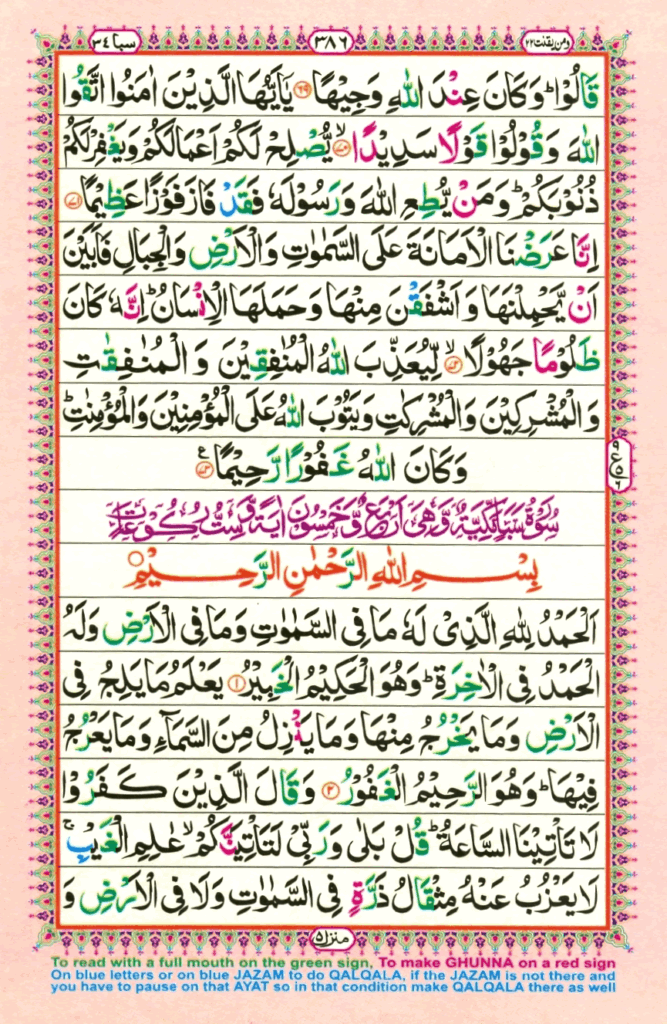 ومن يقنت ٢٢ ٣٨٦ سبا ٣٤
قَالُوْا ؕ وَكَانَ عِنْدَ اللّٰهِ وَجِيْهًا ﴿۶۹﴾ يٰۤاَيُّهَا الَّذِيْنَ اٰمَنُوا اتَّقُوا
اللّٰهَ وَقُوْلُوْا قَوْلًا سَدِيْدًا ﴿۷۰﴾ۙ يُّصْلِحْ لَكُمْ اَعْمَالَكُمْ وَيَغْفِرْ لَكُمْ
ذُنُوْبَكُمْ ؕ وَمَنْ يُّطِعِ اللّٰهَ وَرَسُوْلَهٗ فَقَدْ فَازَ فَوْزًا عَظِيْمًا ﴿۷۱﴾
اِنَّا عَرَضْنَا الْاَمَانَةَ عَلَى السَّمٰوٰتِ وَالْاَرْضِ وَالْجِبَالِ فَاَبَيْنَ
اَنْ يَّحْمِلْنَهَا وَاَشْفَقْنَ مِنْهَا وَحَمَلَهَا الْاِنْسَانُ ؕ اِنَّهٗ كَانَ
ظَلُوْمًا جَهُوْلًا ﴿۷۲﴾ۙ لِّيُعَذِّبَ اللّٰهُ الْمُنٰفِقِيْنَ وَالْمُنٰفِقٰتِ
وَالْمُشْرِكِيْنَ وَالْمُشْرِكٰتِ وَيَتُوْبَ اللّٰهُ عَلَى الْمُؤْمِنِيْنَ وَالْمُؤْمِنٰتِ ؕ
وَكَانَ اللّٰهُ غَفُوْرًا رَّحِيْمًا ﴿۷۳﴾ ع
سُوْرَةُ سَبَاٍ مَّكِّيَّةٌ وَّهِىَ اَرْبَعٌ وَّخَمْسُوْنَ اٰيَةً وَّسِتُّ رُكُوْعَاتٍ
بِسْمِ اللّٰهِ الرَّحْمٰنِ الرَّحِيْمِ
اَلْحَمْدُ لِلّٰهِ الَّذِىْ لَهٗ مَا فِى السَّمٰوٰتِ وَمَا فِى الْاَرْضِ وَلَهُ
الْحَمْدُ فِى الْاٰخِرَةِ ؕ وَهُوَ الْحَكِيْمُ الْخَبِيْرُ ﴿۱﴾ يَعْلَمُ مَا يَلِجُ فِى
الْاَرْضِ وَمَا يَخْرُجُ مِنْهَا وَمَا يَنْزِلُ مِنَ السَّمَآءِ وَمَا يَعْرُجُ
فِيْهَا ؕ وَهُوَ الرَّحِيْمُ الْغَفُوْرُ ﴿۲﴾ وَقَالَ الَّذِيْنَ كَفَرُوْا
لَا تَاْتِيْنَا السَّاعَةُ ؕ قُلْ بَلٰى وَرَبِّىْ لَتَاْتِيَنَّكُمْ ۙ عٰلِمِ الْغَيْبِ ۚ
لَا يَعْزُبُ عَنْهُ مِثْقَالُ ذَرَّةٍ فِى السَّمٰوٰتِ وَلَا فِى الْاَرْضِ وَ
منزل ۵
To read with a full mouth on the green sign, To make GHUNNA on a red sign
On blue letters or on blue JAZAM to do QALQALA, if the JAZAM is not there and
you have to pause on that AYAT so in that condition make QALQALA there as well